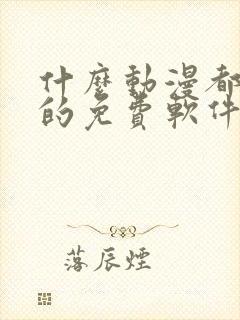 什麼動漫都
的免費軟件
落辰煙